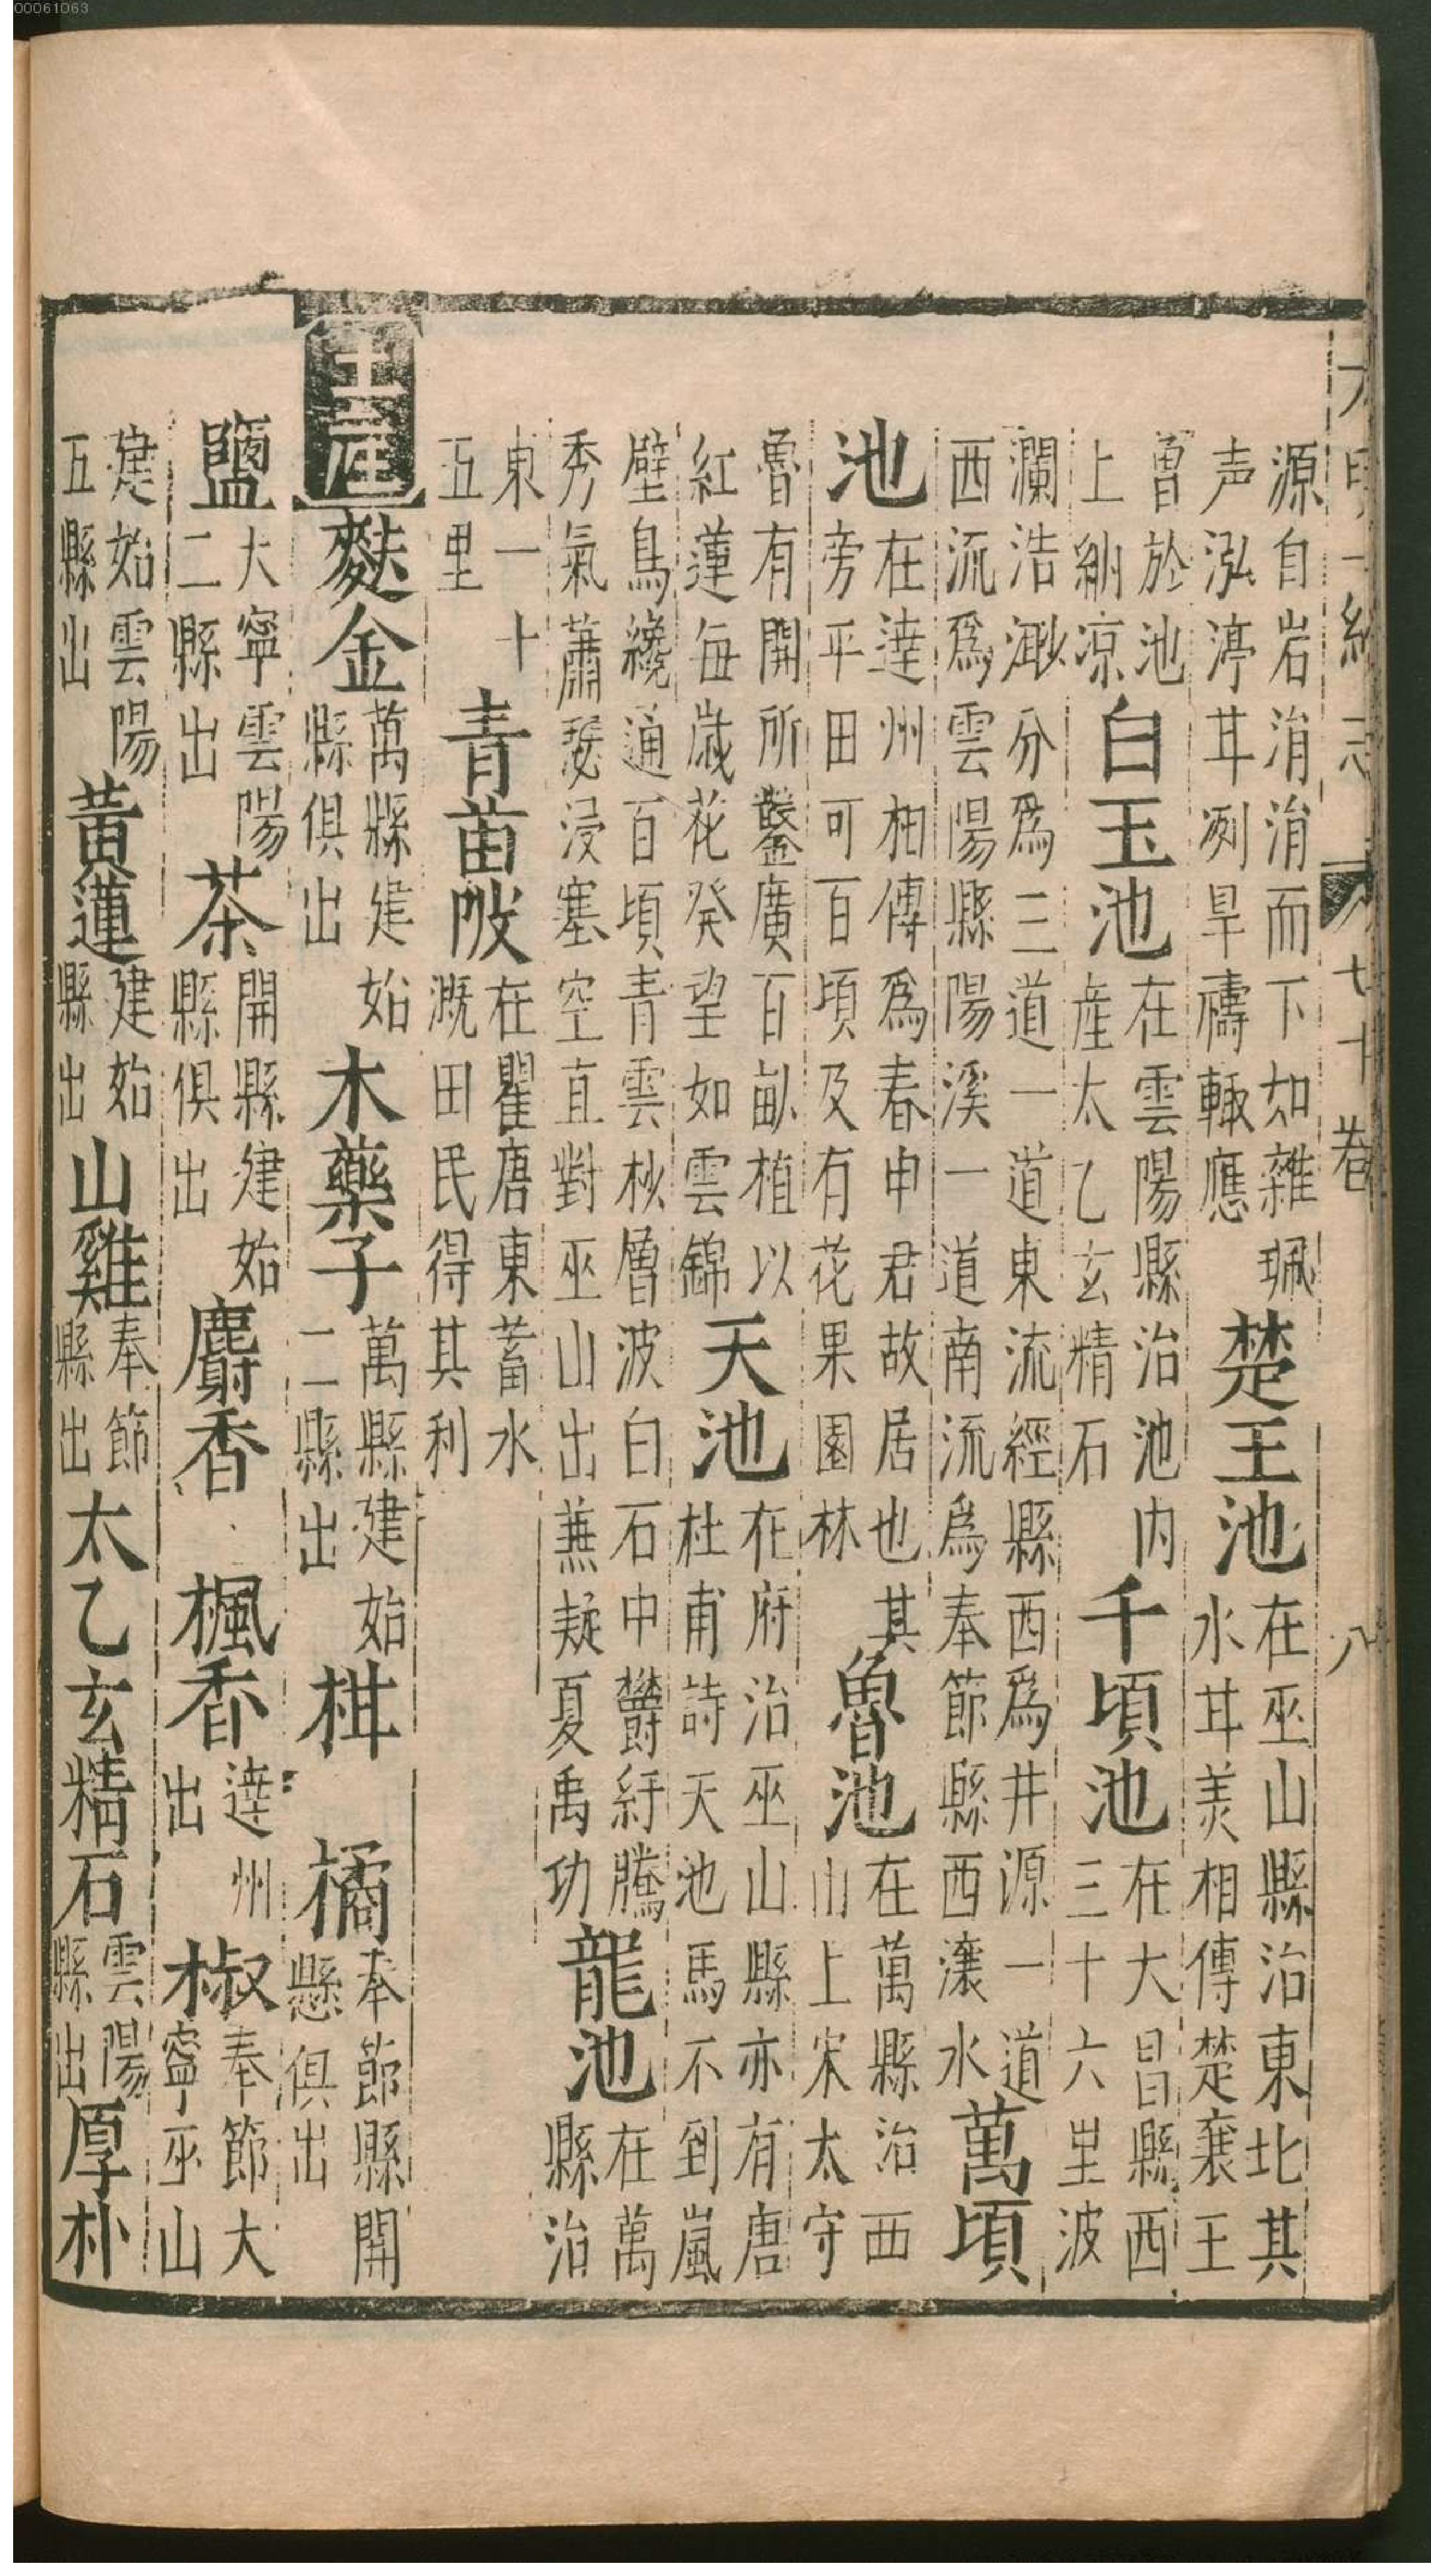 大明一統志 七十卷 八
源自岩涓涓而下如雜珮声泓渟甘冽旱禱輒應楚王池在巫山縣治東北其水甘美相傳楚襄王
曽於池上納凉白玉池在雲陽縣治池内產太乙玄精石千頃池在大昌縣西三十六里波
瀾浩渺分爲三道一道東流經縣西爲井源一道西流爲雲陽縣陽溪一道南流爲奉節縣西瀼水萬頃
池在達州相傳爲春申君故居也其旁平田可百頃及有花果園林魯池在萬縣治西山上宋太守
魯有開所鑿廣百畝植以紅蓮每歲花癸望如雲錦天池在府治巫山縣亦有唐杜甫詩天池馬不到嵐
壁鳥纔通百頃青雲杪層波白石中欝紆騰秀氣蕭瑟浸塞空直對巫山出蕪疑夏禹功龍池在萬縣治
東一十五里青苗陂在瞿唐東蓄水溉田民得其利
土産麩金萬縣建始縣俱出木藥子萬縣建始二縣出柑橘奉節縣開懸俱出
鹽大寧雲陽二縣出茶開縣建始縣俱出麝香楓香達州出椒奉節大寧巫山
建始雲陽五縣出黄蓮建始縣出山雞奉節縣出太乙玄精石雲陽縣出厚朴
00061063